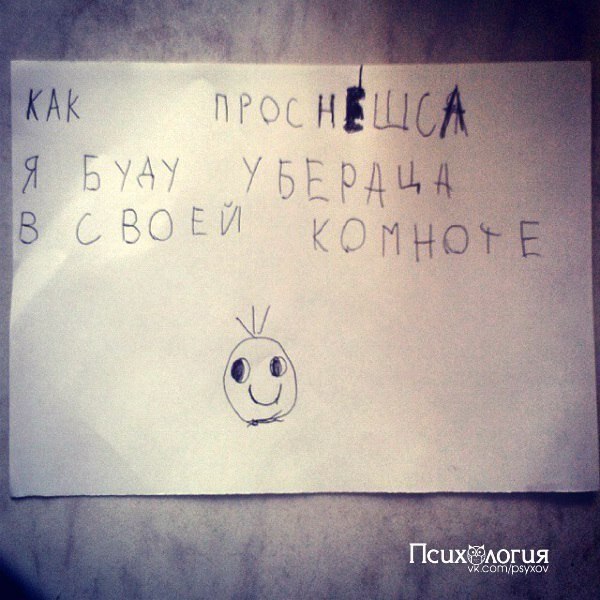 КАК ПРОСНЕШСА
Я БУДУ УБЕРАЦА
В СВОЕЙ КОМНОТЕ
Психология
vk.com/psyxov